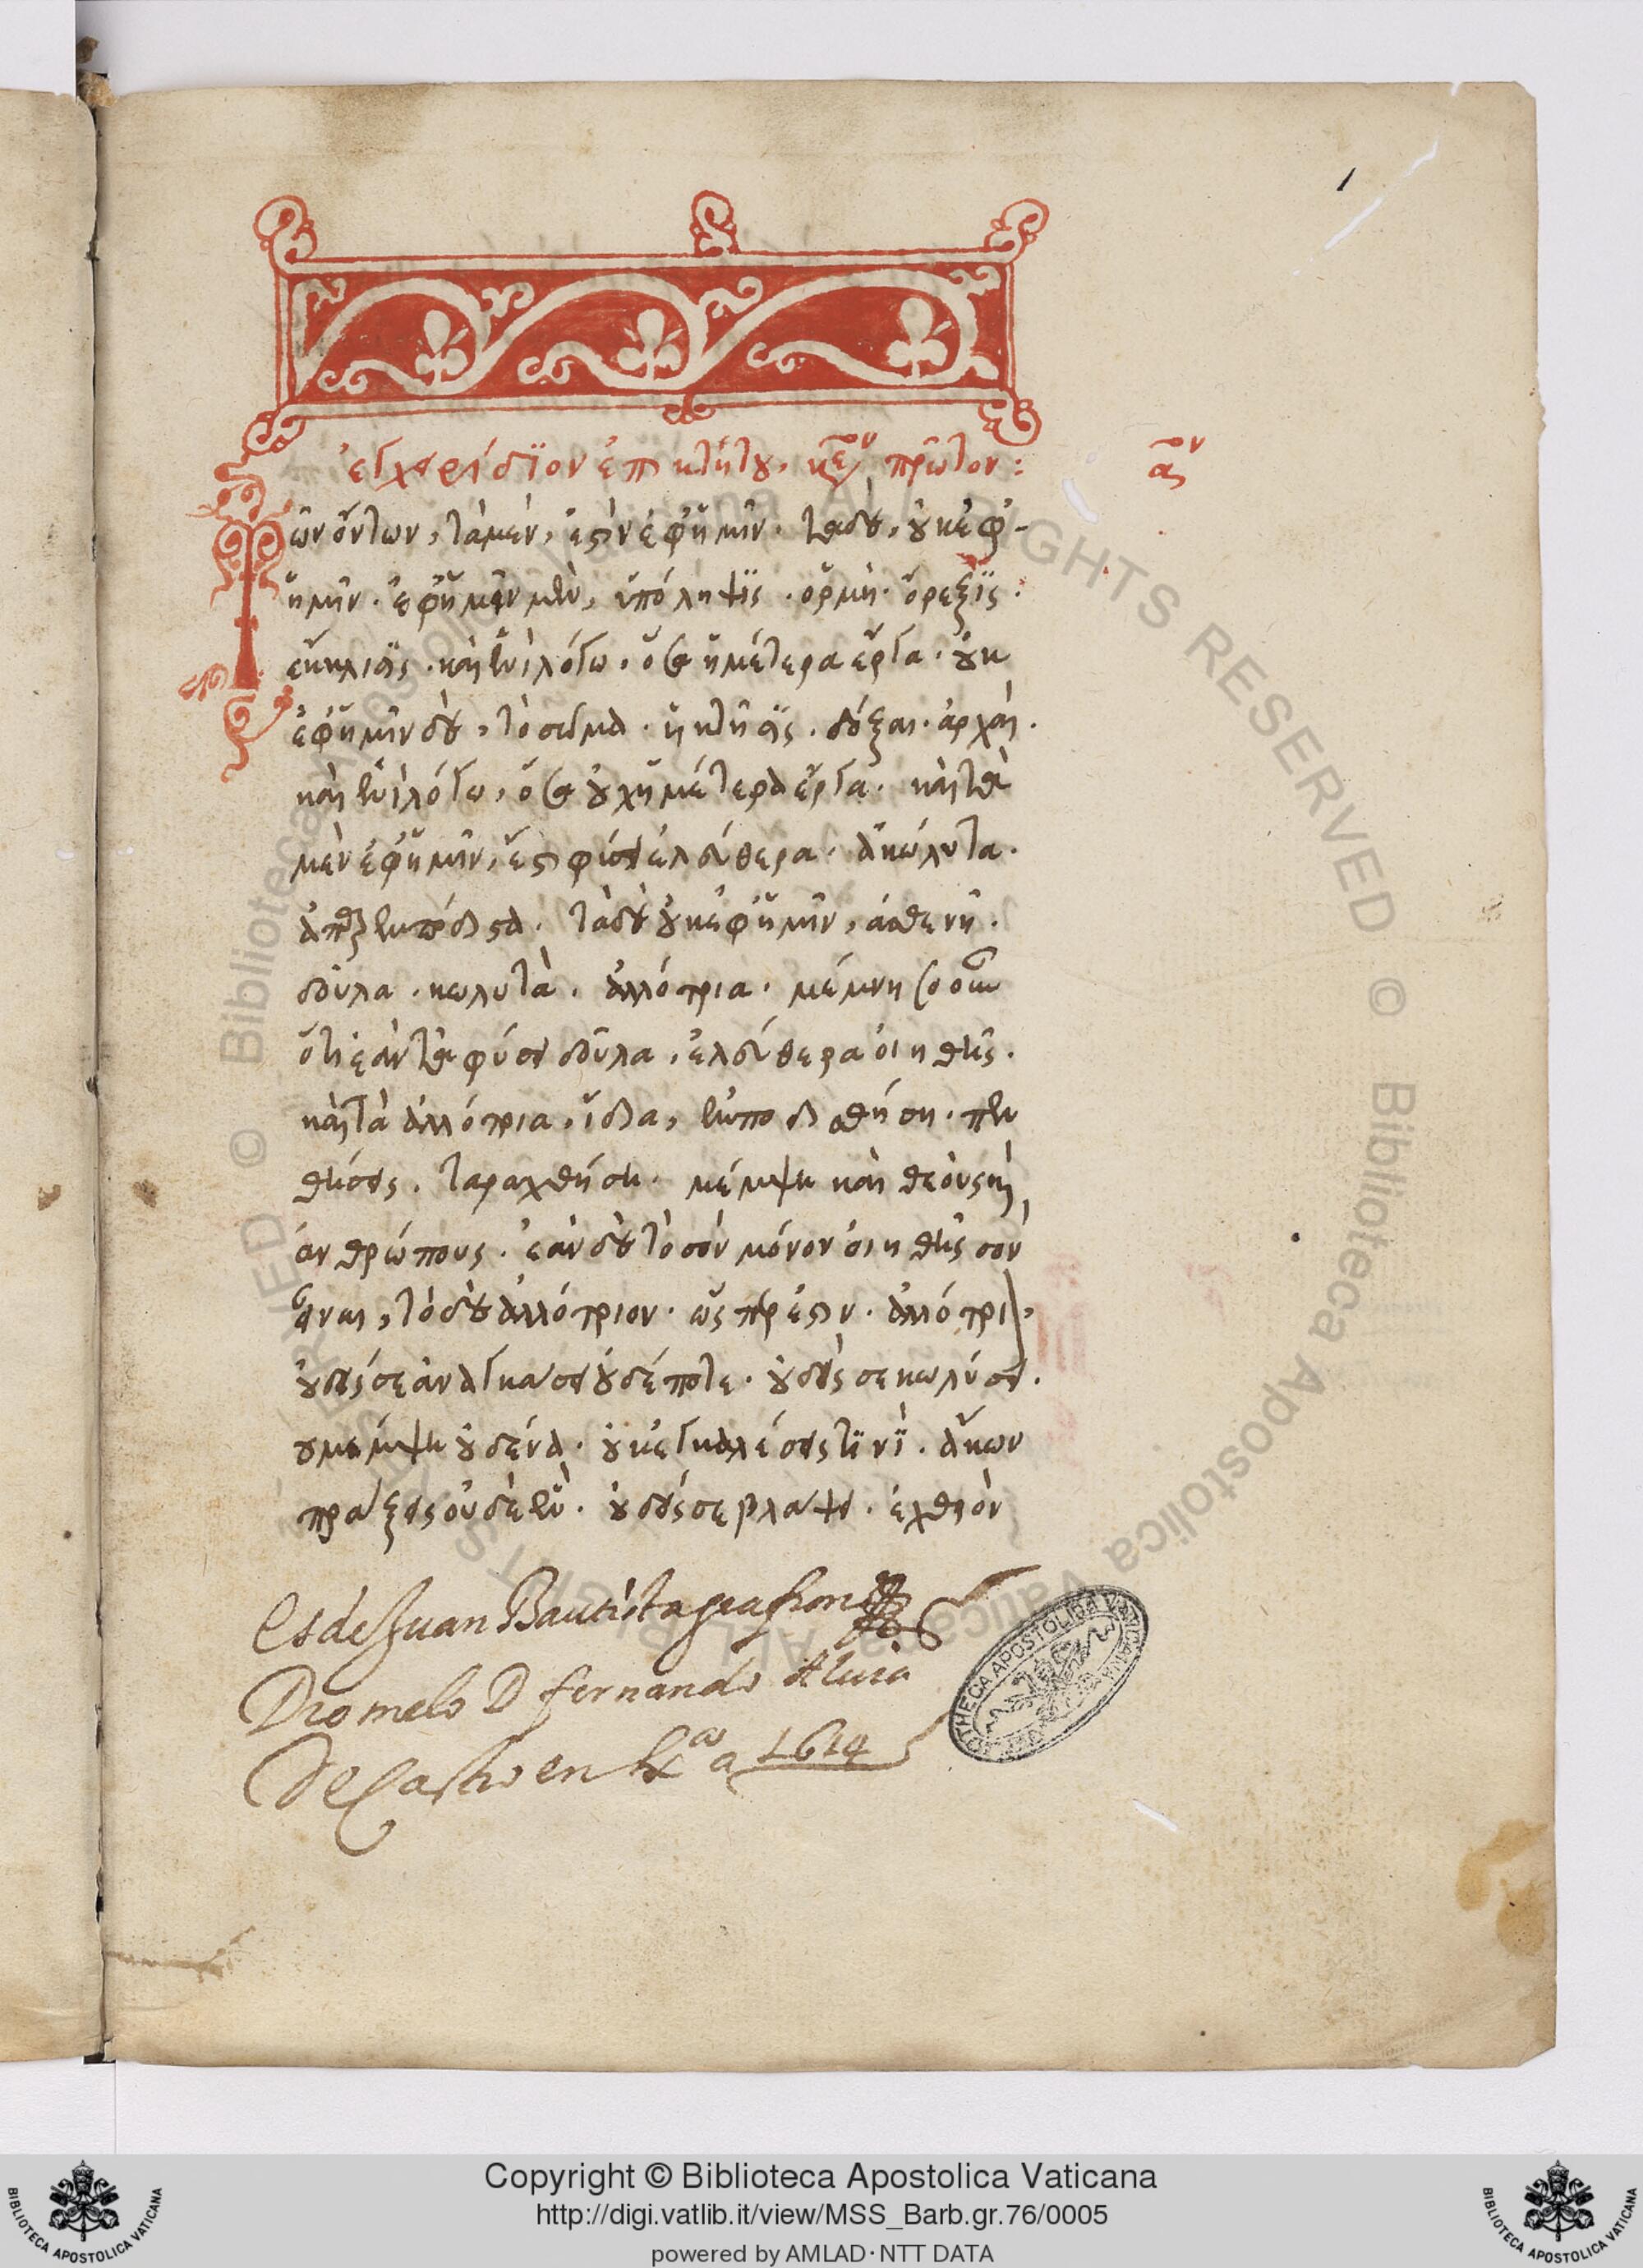 1
ἐγχειρίδϊον ἐπικτήτου. κεφ πρῶτον:
αον
Τῶν ὄντων, τὰ μέν, ἔστιν ἐφ' ἡμῖν. τὰ δε, οὐκ ἐφ'
ἡμῖν. ἐφ' ἡμῖν μὲν, ὑπόληψϊς. ὁρμὴ. ὄρεξϊς:
ἔκκλισϊς. καὶ ἑνὶ λόγω, ὅσα ἡμέτερα ἔργα. οὐκ
ἐφ' ἡμῖν δὲ, τὸ σῶμα. ἡ κτῆσϊς. δόξαι. ἀρχαὶ.
καὶ ἑνὶ λόγω, ὅσα οὐχ ἡμέτερα ἔργα. καὶ τὰ
μὲν ἐφ' ἡμῖν, ἔστι φύσει ἐλεύθερα. ἀκώλυτα.
ἀπαρεμπόδιστα. τὰ δὲ οὐκ ἐφ' ἡμῖν, ἀσθενῆ.
δοῦλα. κωλυτὰ. ἀλλότρια. μέμνησο οὖν
ὅτι ἐὰν τὰ φύσει δοῦλα, ἐλεύθερα οἰηθῆς.
καὶ τὰ ἀλλότρια, ἴδια, ἐμποδισθήση. πεν
θήσεις. ταραχθήση. μέμψη καὶ θεοὺς καὶ
ἀνθρώπους. ἐὰν δὲ τὸ σὸν μόνον οἰηθῆς σὸν
εἶναι, τὸ δὲ ἀλλότριον. ὥσπερ ἐστιν. ἀλλότριον,
οὐδείς σε ἀναγκάσει οὐδέποτε. οὐδείς σε κωλύσει.
ου μέμψη οὐδένα. οὐκ ἐγκαλέσεις τϊνϊ. ἄκων
πράξεις οὐδὲ ἕν. οὐδείς σε βλάψει. ἐχθρὸν
Es de Juan Bautista
Diomelo D fernando Aluia
De Castro en Gra a 1614
BIBLIOTHECA APOSTOLICA VATICANA
© Biblioteca Apostolica Vaticana ALL RIGHTS RESERVED © Biblioteca Apostolica Vaticana ALL RIGHTS RESERVED
Copyright © Biblioteca Apostolica Vaticana
http://digi.vatlib.it/view/MSS_Barb.gr.76/0005
powered by AMLAD·NTT DATA
BIBLIOTECA APOSTOLICA VATICANA
BIBLIOTECA APOSTOLICA VATICANA